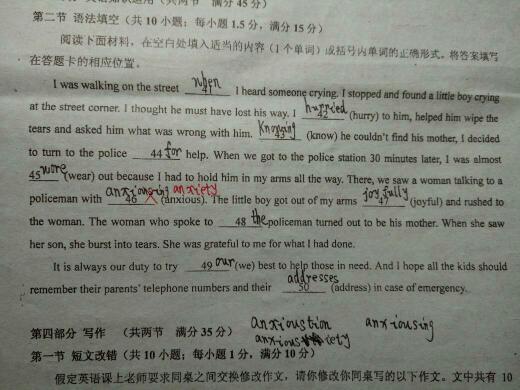 第二节 语法填空（共 10 小题；每小题 1.5 分，满分 15 分）
阅读下面材料，在空白处填入适当的内容（1 个单词）或括号内单词的正确形式。将答案填写
在答题卡的相应位置。
I was walking on the street when 41 I heard someone crying. I stopped and found a little boy crying
at the street corner. I thought he must have lost his way. I hurried 42 (hurry) to him, helped him wipe the
tears and asked him what was wrong with him. Knowing 43 (know) he couldn't find his mother, I decided
to turn to the police 44 for help. When we got to the police station 30 minutes later, I was almost
45 wore (wear) out because I had to hold him in my arms all the way. There, we saw a woman talking to a
policeman with anxiousing anxiety 46 (anxious). The little boy got out of my arms joyfully 47 (joyful) and rushed to
the woman. The woman who spoke to 48 the policeman turned out to be his mother. When she saw
her son, she burst into tears. She was grateful to me for what I had done.
It is always our duty to try 49 our (we) best to help those in need. And I hope all the kids should
remember their parents' telephone numbers and their addresses 50 (address) in case of emergency.
anxioustion anxiousing
第四部分 写作 （共两节 满分 35 分）
第一节 短文改错（共 10 小题；每小题 1 分，满分 10 分）
假定英语课上老师要求同桌之间交换修改作文，请你修改你同桌写的以下作文。文中共有 10